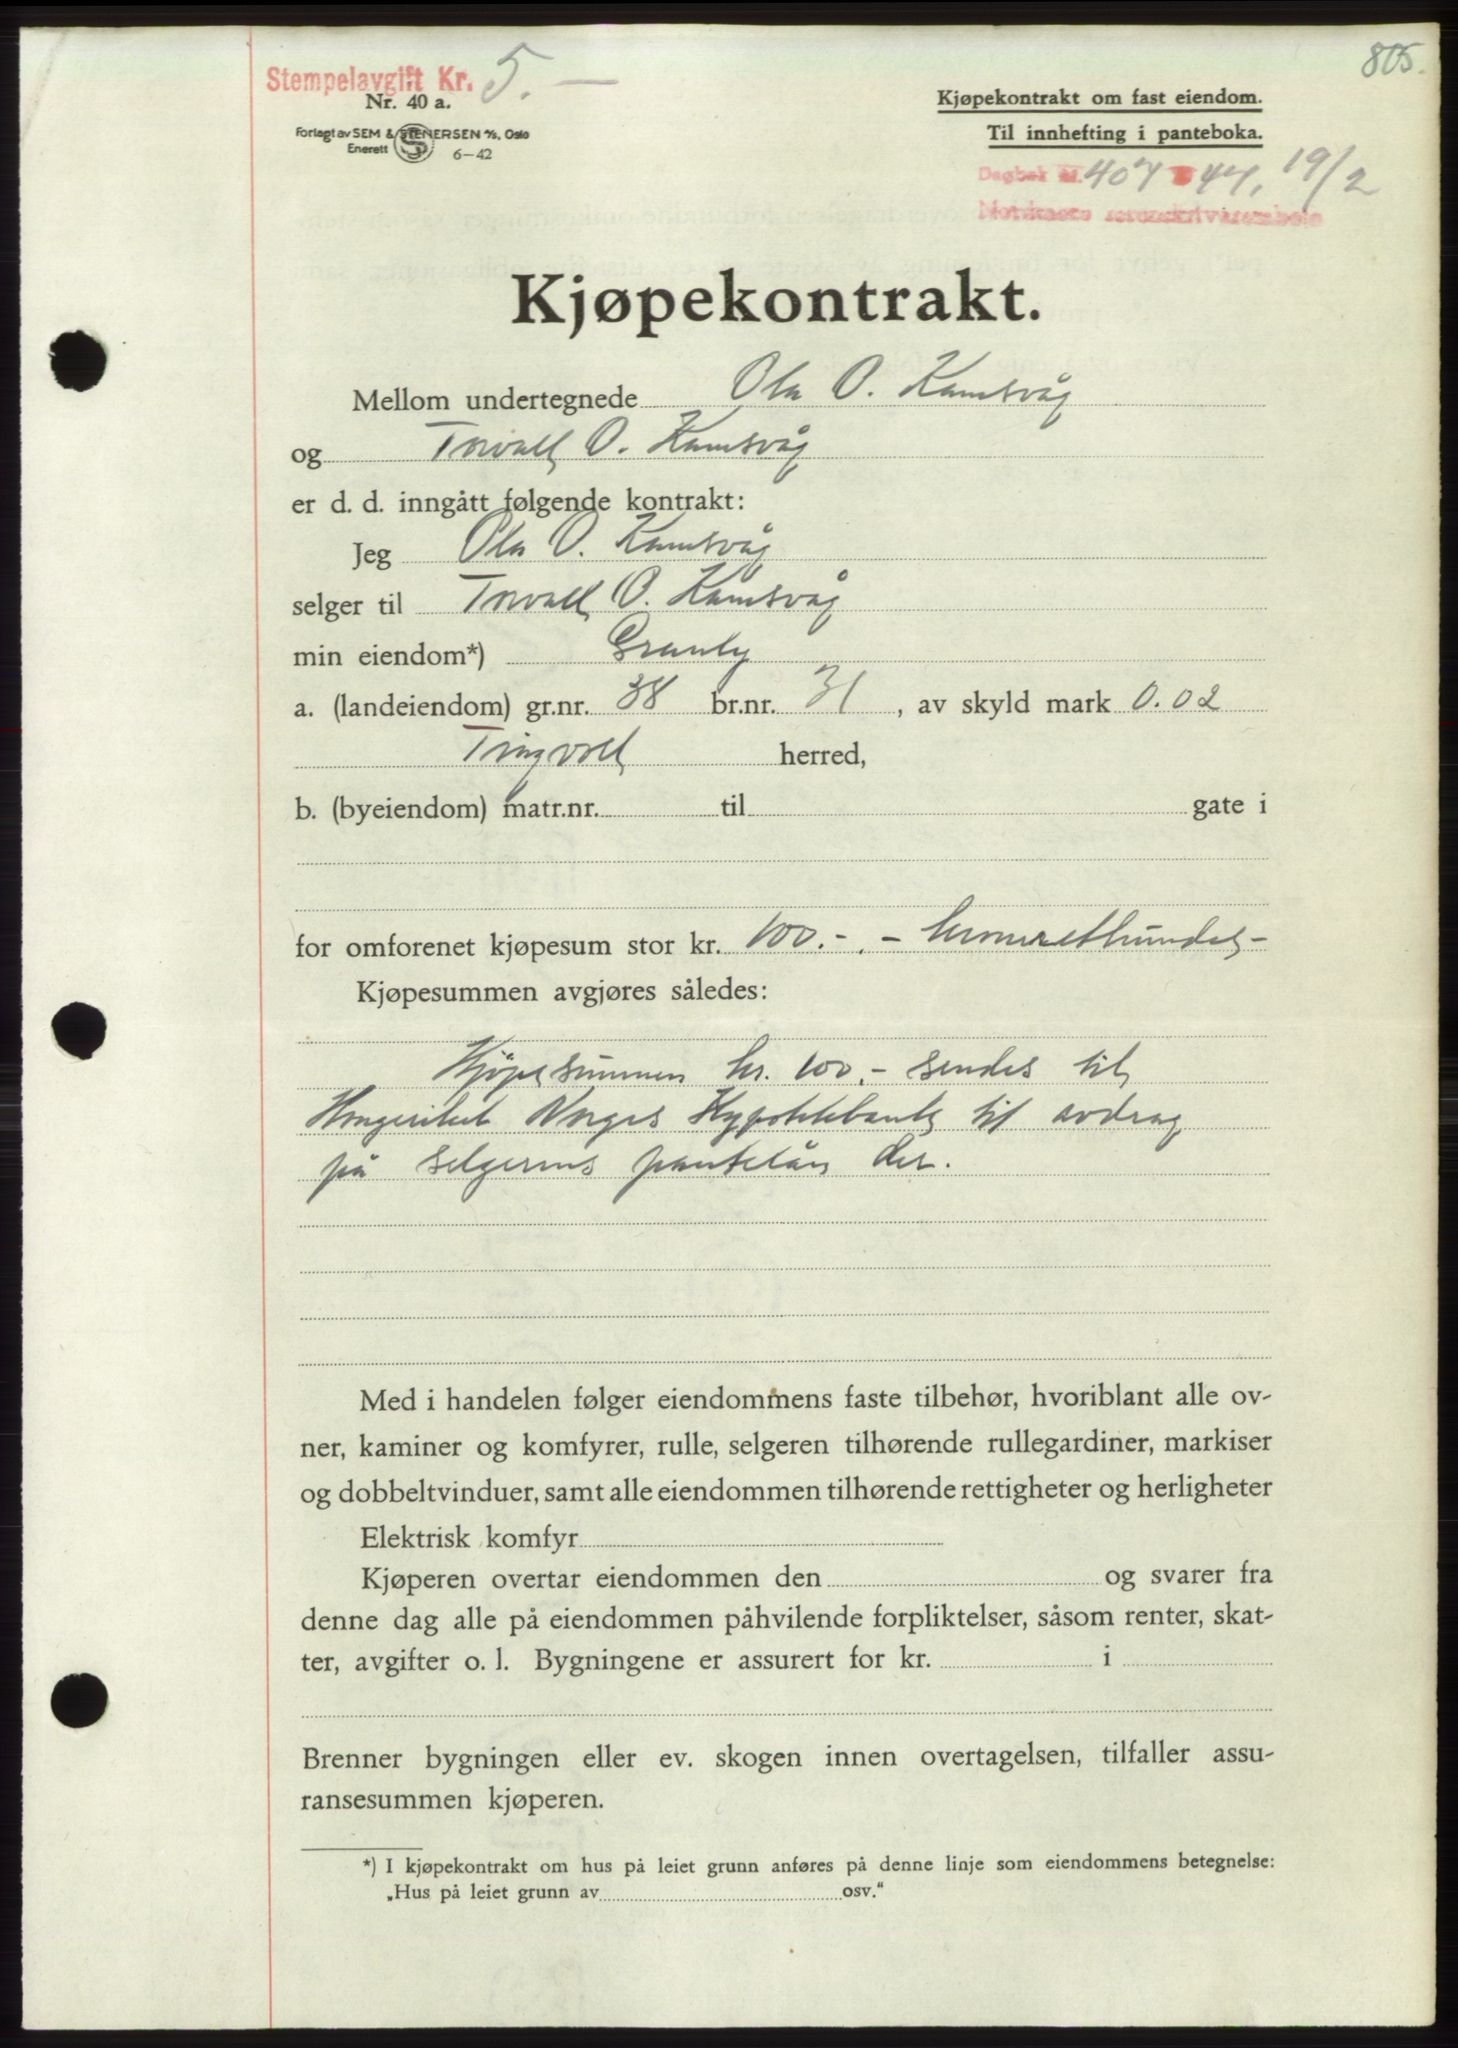 805.
Stempelavgift Kr. 5.—
Nr. 40 a.
Forlagt av SEM & STENERSEN A/S, Oslo
Enerett
6-42
Kjøpekontrakt om fast eiendom.
Til innhefting i panteboka.
Dagbok nr. 407 44, 19/2
Kjøpekontrakt.
Mellom undertegnede Ola O. Kamsvåg
og Torvall O. Kamsvåg
er d. d. inngått følgende kontrakt:
Jeg Ola O. Kamsvåg
selger til Torvall O. Kamsvåg
min eiendom*) Granly
a. (landeiendom) gr.nr. 38 br.nr. 31, av skyld mark 0.02
Tingvoll herred,
b. (byeiendom) matr.nr. til gate i
for omforenet kjøpesum stor kr. 100.-. -
Kjøpesummen avgjøres således:
Kjøpesummen kr. 100.- sendes til
Kongeriket Norges Hypotekbank til avdrag
på selgerens pantelån der.
Med i handelen følger eiendommens faste tilbehør, hvoriblant alle ov-
ner, kaminer og komfyrer, rulle, selgeren tilhørende rullegardiner, markiser
og dobbeltvinduer, samt alle eiendommen tilhørende rettigheter og herligheter
Elektrisk komfyr
Kjøperen overtar eiendommen den og svarer fra
denne dag alle på eiendommen påhvilende forpliktelser, såsom renter, skat-
ter, avgifter o. l. Bygningene er assurert for kr. i
Brenner bygningen eller ev. skogen innen overtagelsen, tilfaller assu-
ransesummen kjøperen.
*) I kjøpekontrakt om hus på leiet grunn anføres på denne linje som eiendommens betegnelse:
„Hus på leiet grunn av osv.“